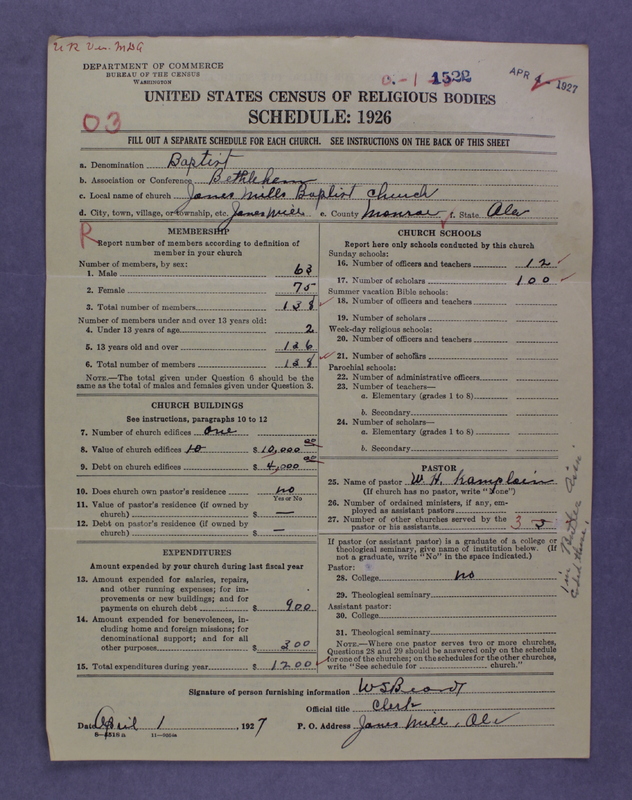 U R Ver. MDG
DEPARTMENT OF COMMERCE
BUREAU OF THE CENSUS
WASHINGTON
1522
APR 4 1927
UNITED STATES CENSUS OF RELIGIOUS BODIES
SCHEDULE: 1926
03
FILL OUT A SEPARATE SCHEDULE FOR EACH CHURCH. SEE INSTRUCTIONS ON THE BACK OF THIS SHEET
a. Denomination Baptist
b. Association or Conference Bethlehem
c. Local name of church Jones Mills Baptist Church
d. City, town, village, or township, etc. Jones Mill e. County Monroe f. State Ala
R
MEMBERSHIP
Report number of members according to definition of
member in your church
Number of members, by sex:
1. Male 63
2. Female 75
3. Total number of members 138
Number of members under and over 13 years old:
4. Under 13 years of age 2
5. 13 years old and over 136
6. Total number of members 138
NOTE.—The total given under Question 6 should be the
same as the total of males and females given under Question 3.
CHURCH BUILDINGS
See instructions, paragraphs 10 to 12
7. Number of church edifices one
8. Value of church edifices 10 $ 10,000 00
9. Debt on church edifices $ 4,000 00
10. Does church own pastor's residence no
Yes or No
11. Value of pastor's residence (if owned by
church) $ —
12. Debt on pastor's residence (if owned by
church) $ —
EXPENDITURES
Amount expended by your church during last fiscal year
13. Amount expended for salaries, repairs,
and other running expenses; for im-
provements or new buildings; and for
payments on church debt $ 900
14. Amount expended for benevolences, in-
cluding home and foreign missions; for
denominational support; and for all
other purposes $ 300
15. Total expenditures during year $ 1200
CHURCH SCHOOLS
Report here only schools conducted by this church
Sunday schools:
16. Number of officers and teachers 12
17. Number of scholars 100
Summer vacation Bible schools:
18. Number of officers and teachers
19. Number of scholars
Week-day religious schools:
20. Number of officers and teachers
21. Number of scholars
Parochial schools:
22. Number of administrative officers
23. Number of teachers—
a. Elementary (grades 1 to 8)
b. Secondary
24. Number of scholars—
a. Elementary (grades 1 to 8)
b. Secondary
PASTOR
25. Name of pastor W. H. Kamplain
(If church has no pastor, write "None")
26. Number of ordained ministers, if any, em-
ployed as assistant pastors
27. Number of other churches served by the
pastor or his assistants 3
If pastor (or assistant pastor) is a graduate of a college or
theological seminary, give name of institution below. (If
not a graduate, write "No" in the space indicated.)
Pastor:
28. College no
29. Theological seminary
Assistant pastor:
30. College
31. Theological seminary
NOTE.—Where one pastor serves two or more churches,
Questions 28 and 29 should be answered only on the schedule
for one of the churches; on the schedules for the other churches,
write "See schedule for church."
Signature of person furnishing information W S Beard
Official title Clerk
Date April 1, 1927 P. O. Address Jones Mill, Ala
8—4516a 11—9054a